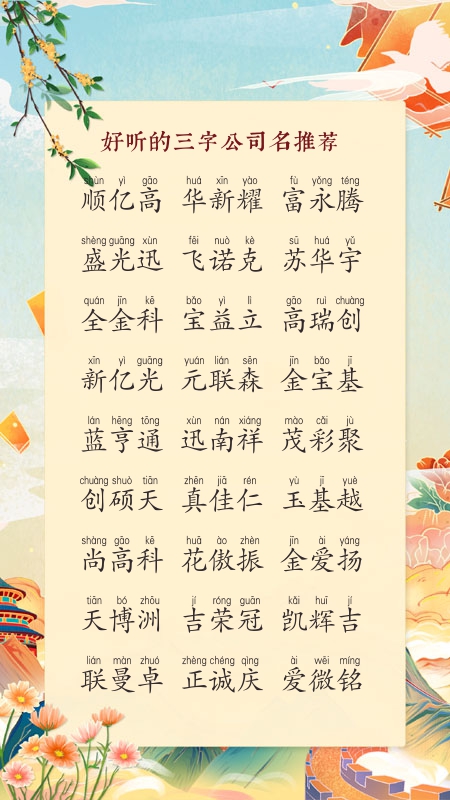 好听的三字公司名推荐
shùn yì gāo huá xīn yào fù yǒng téng
顺亿高 华新耀 富永腾
shèng guāng xùn fēi nuò kè sū huá yǔ
盛光迅 飞诺克 苏华宇
quán jīn kē bǎo yì lì gāo ruì chuàng
全金科 宝益立 高瑞创
xīn yì guāng yuán lián sēn jīn bǎo jī
新亿光 元联森 金宝基
lán hēng tōng xùn nán xiáng mào cǎi jù
蓝亨通 迅南祥 茂彩聚
chuàng shuò tiān zhēn jiā rén yù jī yuè
创硕天 真佳仁 玉基越
shàng gāo kē huā ào zhèn jīn ài yáng
尚高科 花傲振 金爱扬
tiān bó zhōu jí róng guān kǎi huī jí
天博洲 吉荣冠 凯辉吉
lián màn zhuó zhèng chéng qìng ài wēi míng
联曼卓 正诚庆 爱微铭